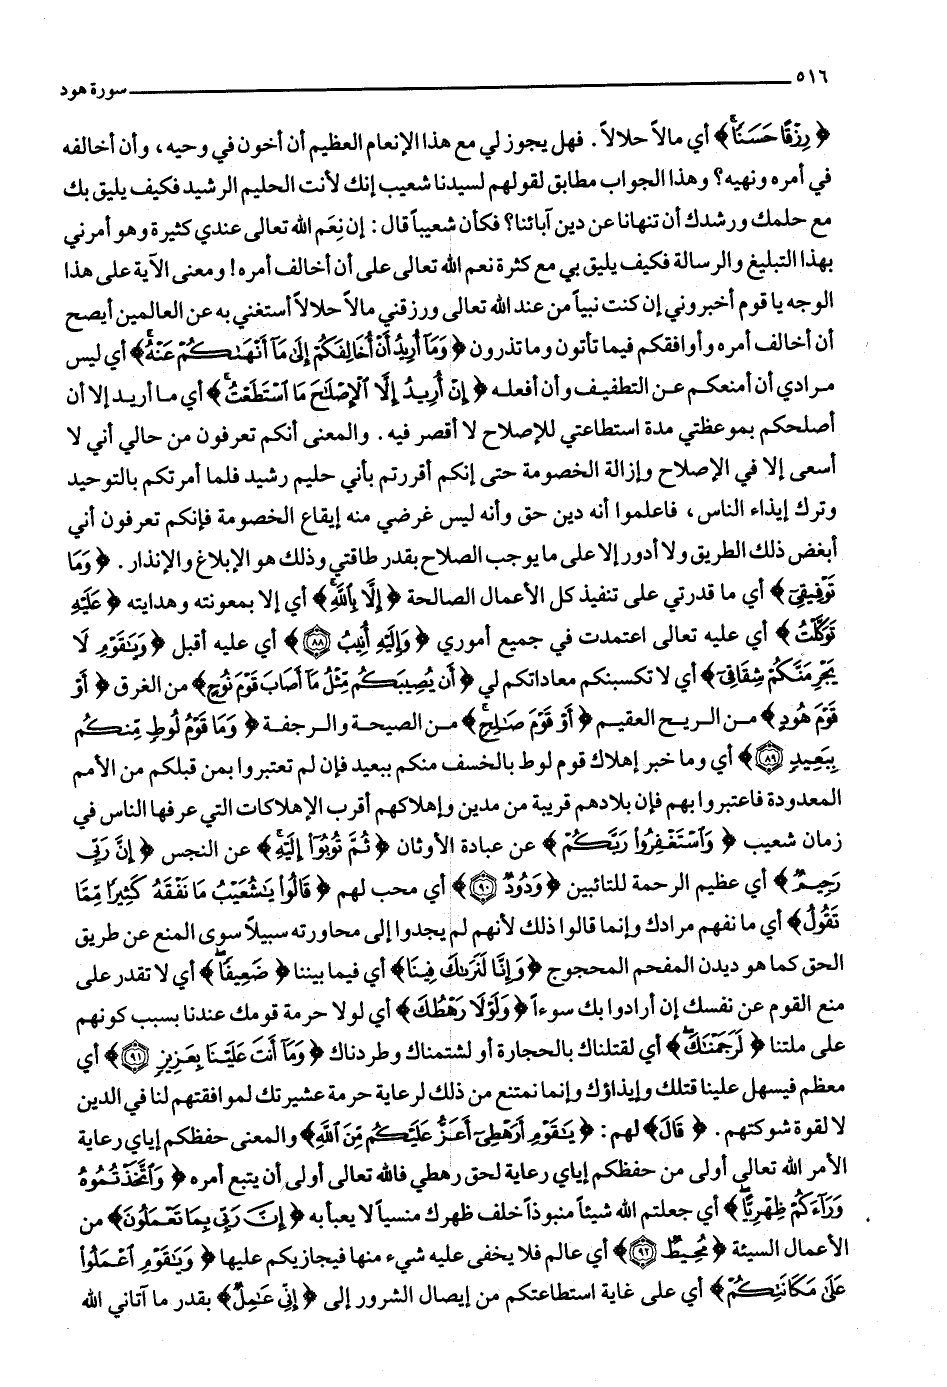 ٥١٦ سورة هود
﴿ رِزْقًا حَسَنًا ﴾ أي مالاً حلالاً . فهل يجوز لي مع هذا الإنعام العظيم أن أخون في وحيه ، وأن أخالفه
في أمره ونهيه؟ وهذا الجواب مطابق لقولهم لسيدنا شعيب إنك لأنت الحليم الرشيد فكيف يليق بك
مع حلمك ورشدك أن تنهانا عن دين آبائنا؟ فكأن شعيباً قال : إن نِعَم الله تعالى عندي كثيرة وهو أمرني
بهذا التبليغ والرسالة فكيف يليق بي مع كثرة نعم الله تعالى على أن أخالف أمره! ومعنى الآية على هذا
الوجه يا قوم أخبروني إن كنت نبياً من عند الله تعالى ورزقني مالاً حلالاً أستغني به عن العالمين أيصح
أن أخالف أمره وأوافقكم فيما تأتون وما تذرون ﴿ وَمَآ أُرِيدُ أَنْ أُخَالِفَكُمْ إِلَىٰ مَآ أَنْهَىٰكُمْ عَنْهُ ﴾ أي ليس
مرادي أن أمنعكم عن التطفيف وأن أفعله ﴿ إِنْ أُرِيدُ إِلَّا ٱلْإِصْلَٰحَ مَا ٱسْتَطَعْتُ ﴾ أي ما أريد إلا أن
أصلحكم بموعظتي مدة استطاعتي للإصلاح لا أقصر فيه . والمعنى أنكم تعرفون من حالي أني لا
أسعى إلا في الإصلاح وإزالة الخصومة حتى إنكم أقررتم بأني حليم رشيد فلما أمرتكم بالتوحيد
وترك إيذاء الناس ، فاعلموا أنه دين حق وأنه ليس غرضي منه إيقاع الخصومة فإنكم تعرفون أني
أبغض ذلك الطريق ولا أدور إلا على ما يوجب الصلاح بقدر طاقتي وذلك هو الإبلاغ والإنذار . ﴿ وَمَا
تَوْفِيقِىٓ ﴾ أي ما قدرتي على تنفيذ كل الأعمال الصالحة ﴿ إِلَّا بِٱللَّهِ ﴾ أي إلا بمعونته وهدايته ﴿ عَلَيْهِ
تَوَكَّلْتُ ﴾ أي عليه تعالى اعتمدت في جميع أموري ﴿ وَإِلَيْهِ أُنِيبُ ٨٨ ﴾ أي عليه أقبل ﴿ وَيَٰقَوْمِ لَا
يَجْرِمَنَّكُمْ شِقَاقِىٓ ﴾ أي لا تكسبنكم معاداتكم لي ﴿ أَن يُصِيبَكُم مِّثْلُ مَآ أَصَابَ قَوْمَ نُوحٍ ﴾ من الغرق ﴿ أَوْ
قَوْمَ هُودٍ ﴾ من الريح العقيم ﴿ أَوْ قَوْمَ صَٰلِحٍ ﴾ من الصيحة والرجفة ﴿ وَمَا قَوْمُ لُوطٍ مِّنكُم
بِبَعِيدٍ ٨٩ ﴾ أي وما خبر إهلاك قوم لوط بالخسف منكم ببعيد فإن لم تعتبروا بمن قبلكم من الأمم
المعدودة فاعتبروا بهم فإن بلادهم قريبة من مدين وإهلاكهم أقرب الإهلاكات التي عرفها الناس في
زمان شعيب ﴿ وَٱسْتَغْفِرُوا۟ رَبَّكُمْ ﴾ عن عبادة الأوثان ﴿ ثُمَّ تُوبُوٓا۟ إِلَيْهِ ﴾ عن النجس ﴿ إِنَّ رَبِّى
رَحِيمٌ ﴾ أي عظيم الرحمة للتائبين ﴿ وَدُودٌ ٩٠ ﴾ أي محب لهم ﴿ قَالُوا۟ يَٰشُعَيْبُ مَا نَفْقَهُ كَثِيرًا مِّمَّا
تَقُولُ ﴾ أي ما نفهم مرادك وإنما قالوا ذلك لأنهم لم يجدوا إلى محاورته سبيلاً سوى المنع عن طريق
الحق كما هو ديدن المفحم المحجوج ﴿ وَإِنَّا لَنَرَىٰكَ فِينَا ﴾ أي فيما بيننا ﴿ ضَعِيفًا ﴾ أي لا تقدر على
منع القوم عن نفسك إن أرادوا بك سوءاً ﴿ وَلَوْلَا رَهْطُكَ ﴾ أي لولا حرمة قومك عندنا بسبب كونهم
على ملتنا ﴿ لَرَجَمْنَٰكَ ﴾ أي لقتلناك بالحجارة أو لشتمناك وطردناك ﴿ وَمَآ أَنتَ عَلَيْنَا بِعَزِيزٍ ٩١ ﴾ أي
معظم فيسهل علينا قتلك وإيذاؤك وإنما نمتنع من ذلك لرعاية حرمة عشيرتك لموافقتهم لنا في الدين
لا لقوة شوكتهم . ﴿ قَالَ ﴾ لهم : ﴿ يَٰقَوْمِ أَرَهْطِىٓ أَعَزُّ عَلَيْكُم مِّنَ ٱللَّهِ ﴾ والمعنى حفظكم إياي رعاية
الأمر الله تعالى أولى من حفظكم إياي رعاية لحق رهطي فالله تعالى أولى أن يتبع أمره ﴿ وَٱتَّخَذْتُمُوهُ
وَرَآءَكُمْ ظِهْرِيًّا ﴾ أي جعلتم الله شيئاً منبوذاً خلف ظهرك منسياً لا يعبأ به ﴿ إِنَّ رَبِّى بِمَا تَعْمَلُونَ ﴾ من
الأعمال السيئة ﴿ مُحِيطٌ ٩٢ ﴾ أي عالم فلا يخفى عليه شيء منها فيجازيكم عليها ﴿ وَيَٰقَوْمِ ٱعْمَلُوا۟
عَلَىٰ مَكَانَتِكُمْ ﴾ أي على غاية استطاعتكم من إيصال الشرور إلى ﴿ إِنِّى عَٰمِلٌ ﴾ بقدر ما آتاني الله